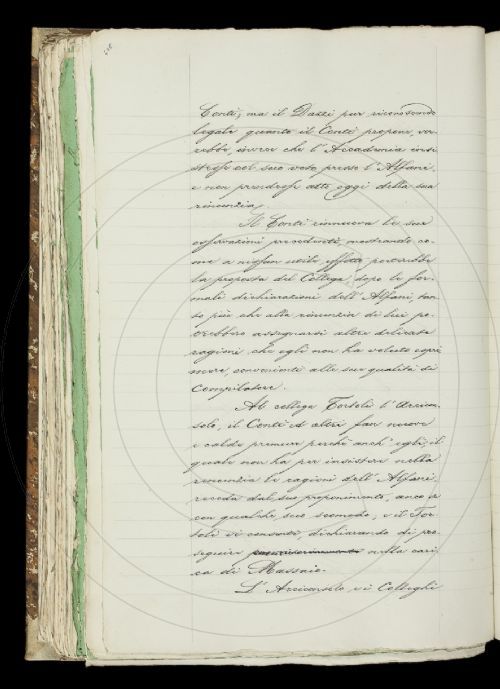 Conti; ma il Dazzi pur riconoscendo
legale quanto il Conti propone, vor-
rebbe invece che l'Accademia insi-
stesse col suo voto presso l'Alfani,
e non prendesse atto oggi della sua
rinunzia.
Il Conti rinnuova le sue
osservazioni precedenti, mostrando co-
me a nissun utile effetto porterebbe
la proposta del Collega, dopo le for-
mali dichiarazioni dell'Alfani, tan-
to più che alla rinunzia di lui po-
trebbero assegnarsi altre delicate
ragioni che egli non ha voluto espri-
mere, conveniente alla sua qualità di
Compilatore.
Al collega Tortoli l'Arcicon-
solo, il Conti ed altri fan nuove
e calde premure perchè anch'egli, il
quale non ha per insistere nella
renunzia le ragioni dell'Alfani,
receda dal suo proponimento, anco a
con qualche suo scomodo; e il Tor-
toli vi consente, dichiarando di pro-
seguire nella cari-
ca di Massaio.
L'Arciconsolo, e i Colleghi